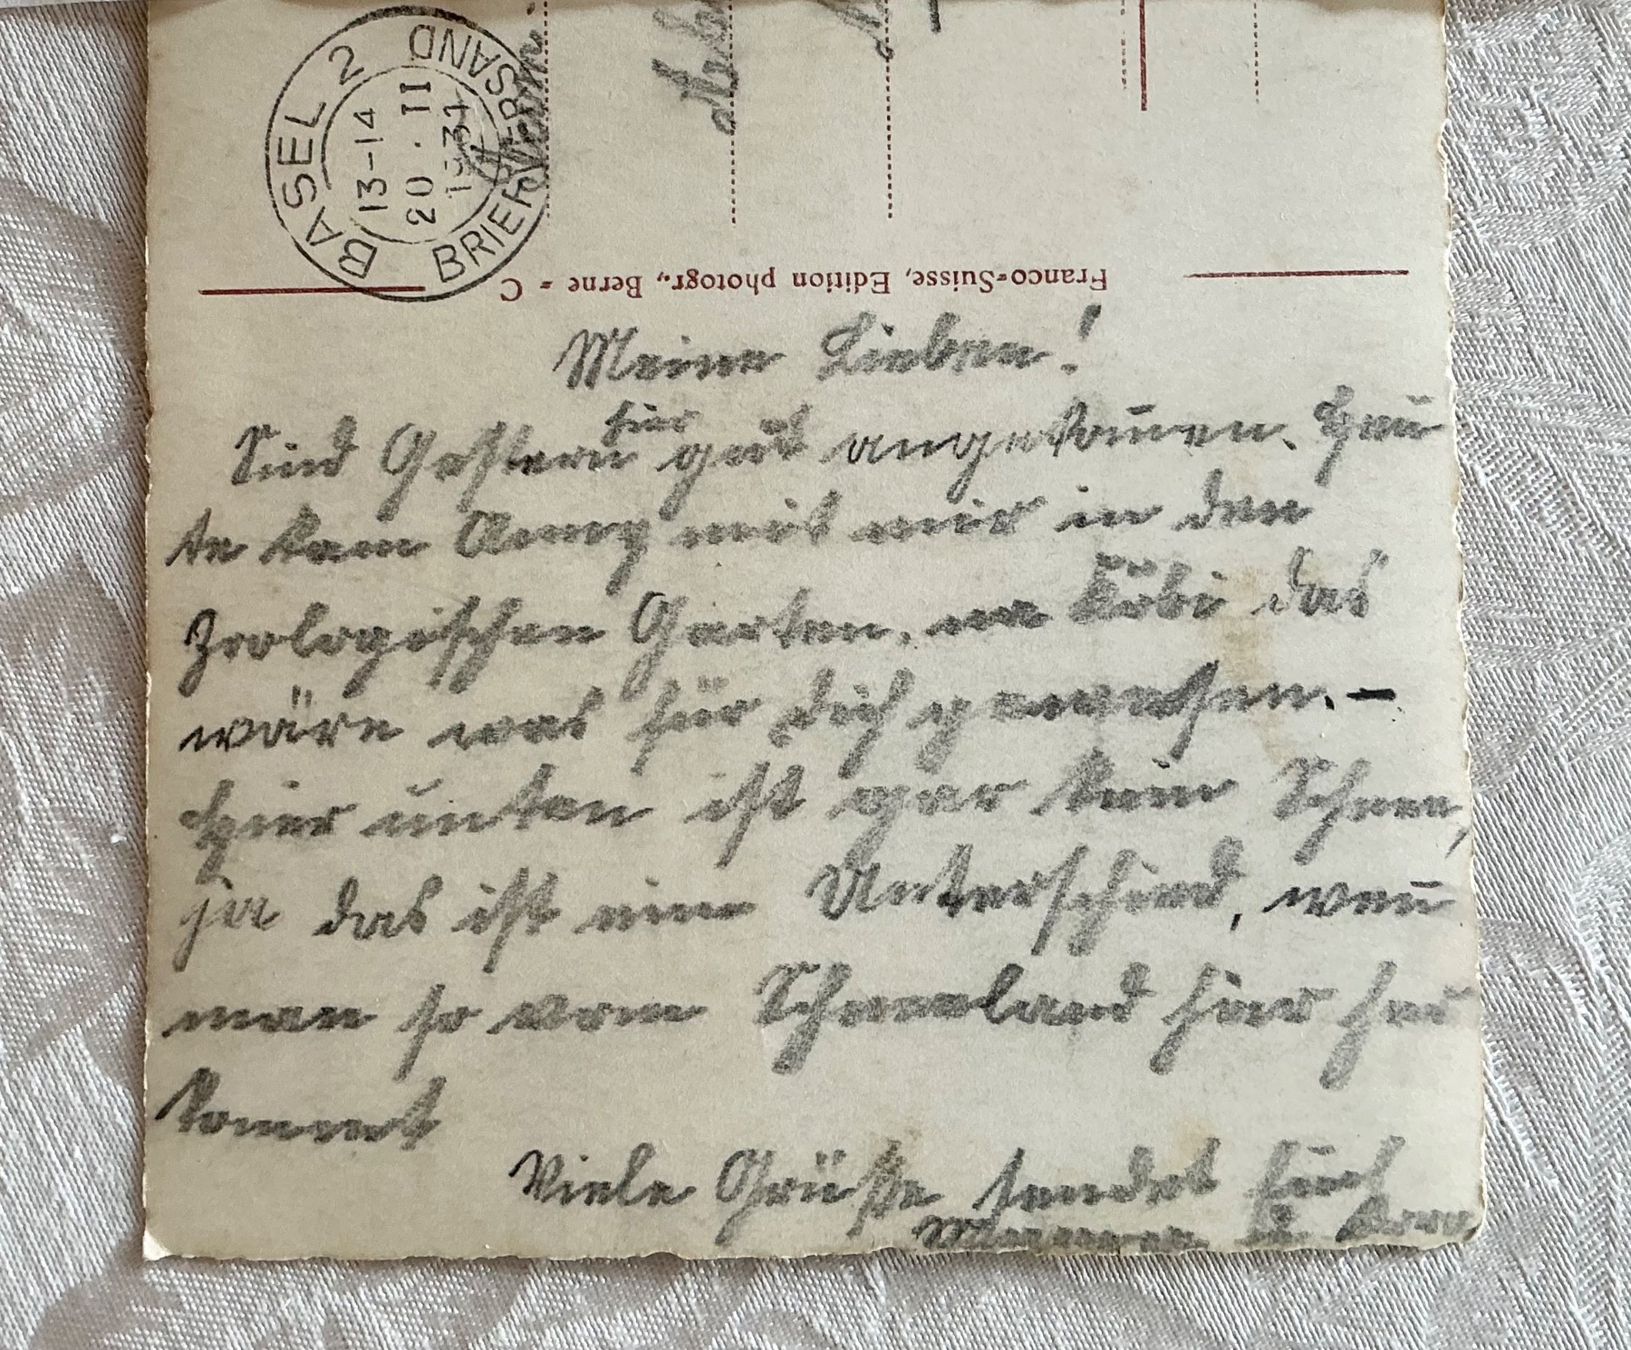 BASEL 2 BRIEFVERSAND
13-14
20·II
1931
Franco-Suisse, Edition photogr., Berne - C
Meine Lieben!
Sind Gestern hier gut angekom̄en. Heu
te kam Anny mit mir in den
Zoologischen Garten, na Köbi das
wäre was für dich gewesen. –
Hier unten ist gar kein Schnee,
ja das ist ein Unterschied, wen̄
man so vom Schneeland hier her
kommt
Viele Grüsse sendet Euch